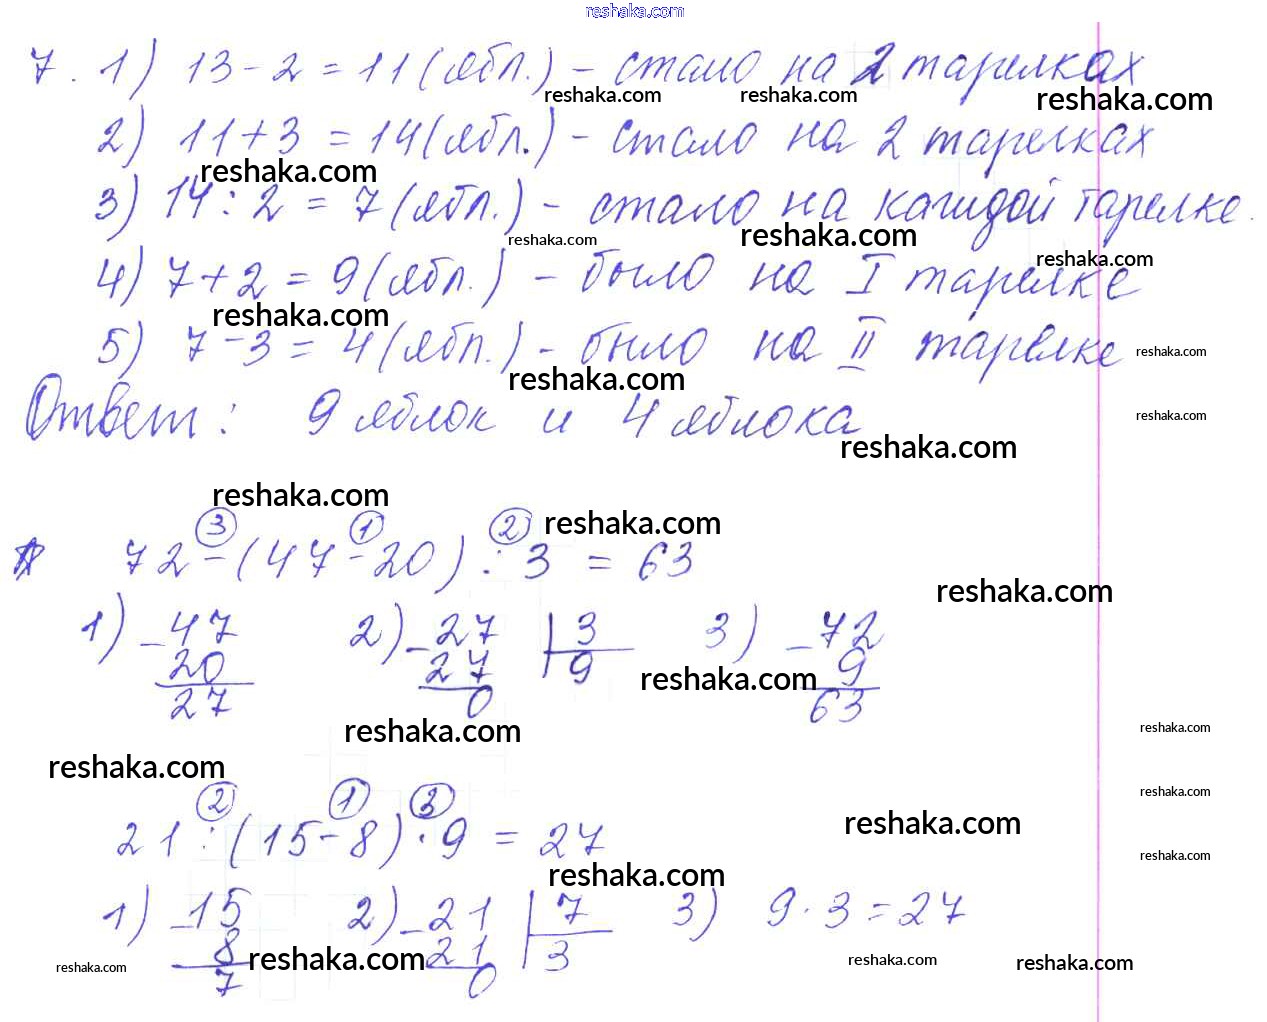 reshaka.com
7. 1) 13 - 2 = 11 (ябл.) - стало на 2 тарелках
reshaka.com reshaka.com reshaka.com
2) 11 + 3 = 14 (ябл.) - стало на 2 тарелках
reshaka.com
3) 14 : 2 = 7 (ябл.) - стало на каждой тарелке.
reshaka.com reshaka.com reshaka.com
4) 7 + 2 = 9 (ябл.) - было на I тарелке
reshaka.com
5) 7 - 3 = 4 (ябл.) - было на II тарелке
reshaka.com reshaka.com
Ответ: 9 яблок и 4 яблока
reshaka.com reshaka.com
reshaka.com reshaka.com
3 1 2
72 - (47 - 20) : 3 = 63
reshaka.com
1) - 47 2) - 27 3 3) - 72
20 27 9 9
27 0 63
reshaka.com
reshaka.com reshaka.com
reshaka.com reshaka.com
2 1 3
21 : (15 - 8) · 9 = 27
reshaka.com reshaka.com
reshaka.com
1) - 15 2) - 21 7 3) 9 · 3 = 27
8 21 3
7 0
reshaka.com reshaka.com reshaka.com reshaka.com